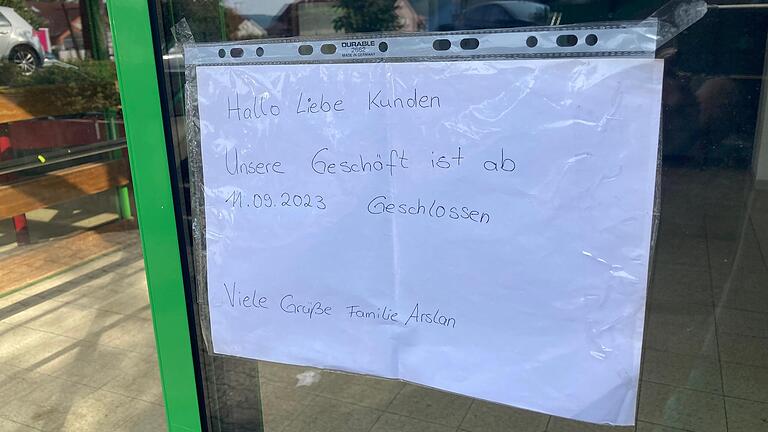 DURABLE
2665
MADE IN GERMANY
Hallo Liebe Kunden
Unsere Geschöft ist ab
11.09.2023 Geschlossen
Viele Grüße Familie Arslan